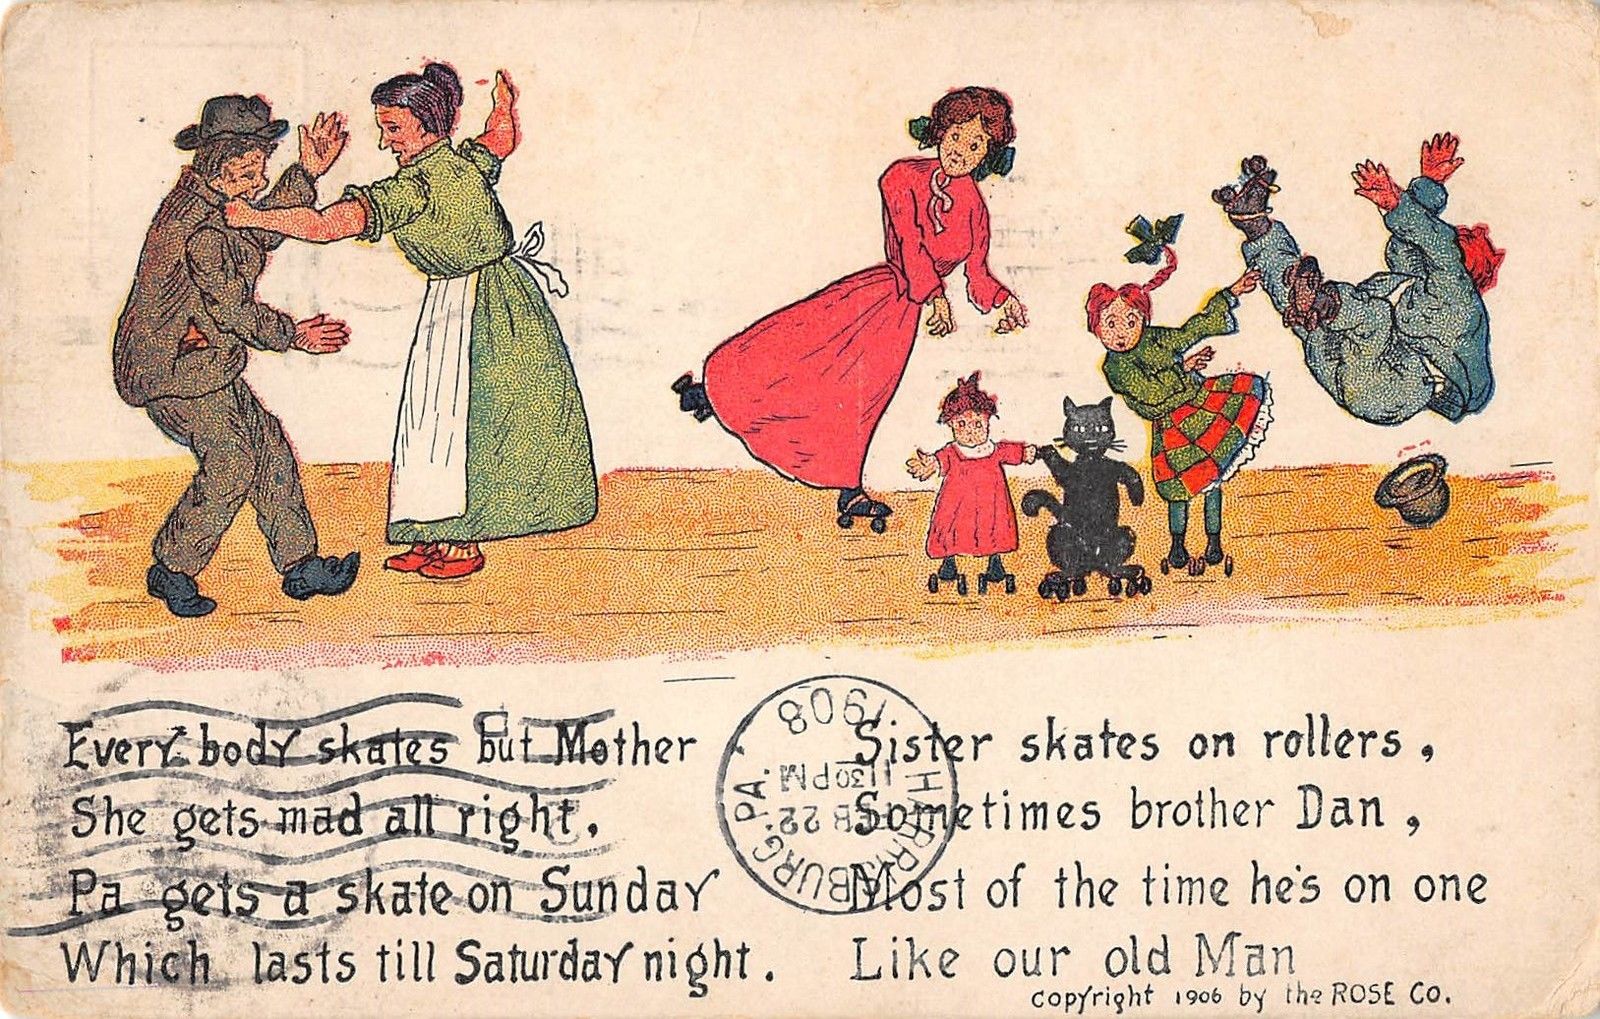 Every body skates but Mother
She gets mad all right.
Pa gets a skate on Sunday
Which lasts till Saturday night.
Sister skates on rollers,
Sometimes brother Dan,
Most of the time he's on one
Like our old Man
copyright 1906 by the ROSE CO.
HARRISBURG, PA.
FEB 22
1130PM
1908